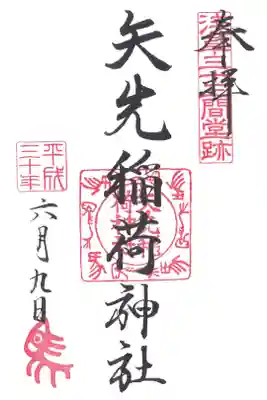 奉拝
浅草三十三間堂跡
矢先稲荷神社
平成
三十年
六月九日